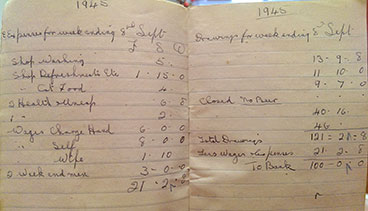 1945
Expenses for week ending 8nd Sept
£ S D
Shop Washing 5.
Shop Refreshments Etc 1 . 15 . 0
" Cat Food 4 .
2 Health 6 . 8
1 " 2 .
Wages Charge Hand 6 0 0
" Self 8 0 0
" Wife 1 . 10
2 Week end men 3 - 0 - 0
21 . 2 . 8
1945
Drawings for week ending 8 Sept
13 - 9 . 8
11 10 0
9 . 7 . 0
Closed No Beer
40 - 16 .
46
Total Drawings 121 = 2 = 8
Less Wages + Expenses 21 . 2 . 8
To Bank 100 - 0 - 0